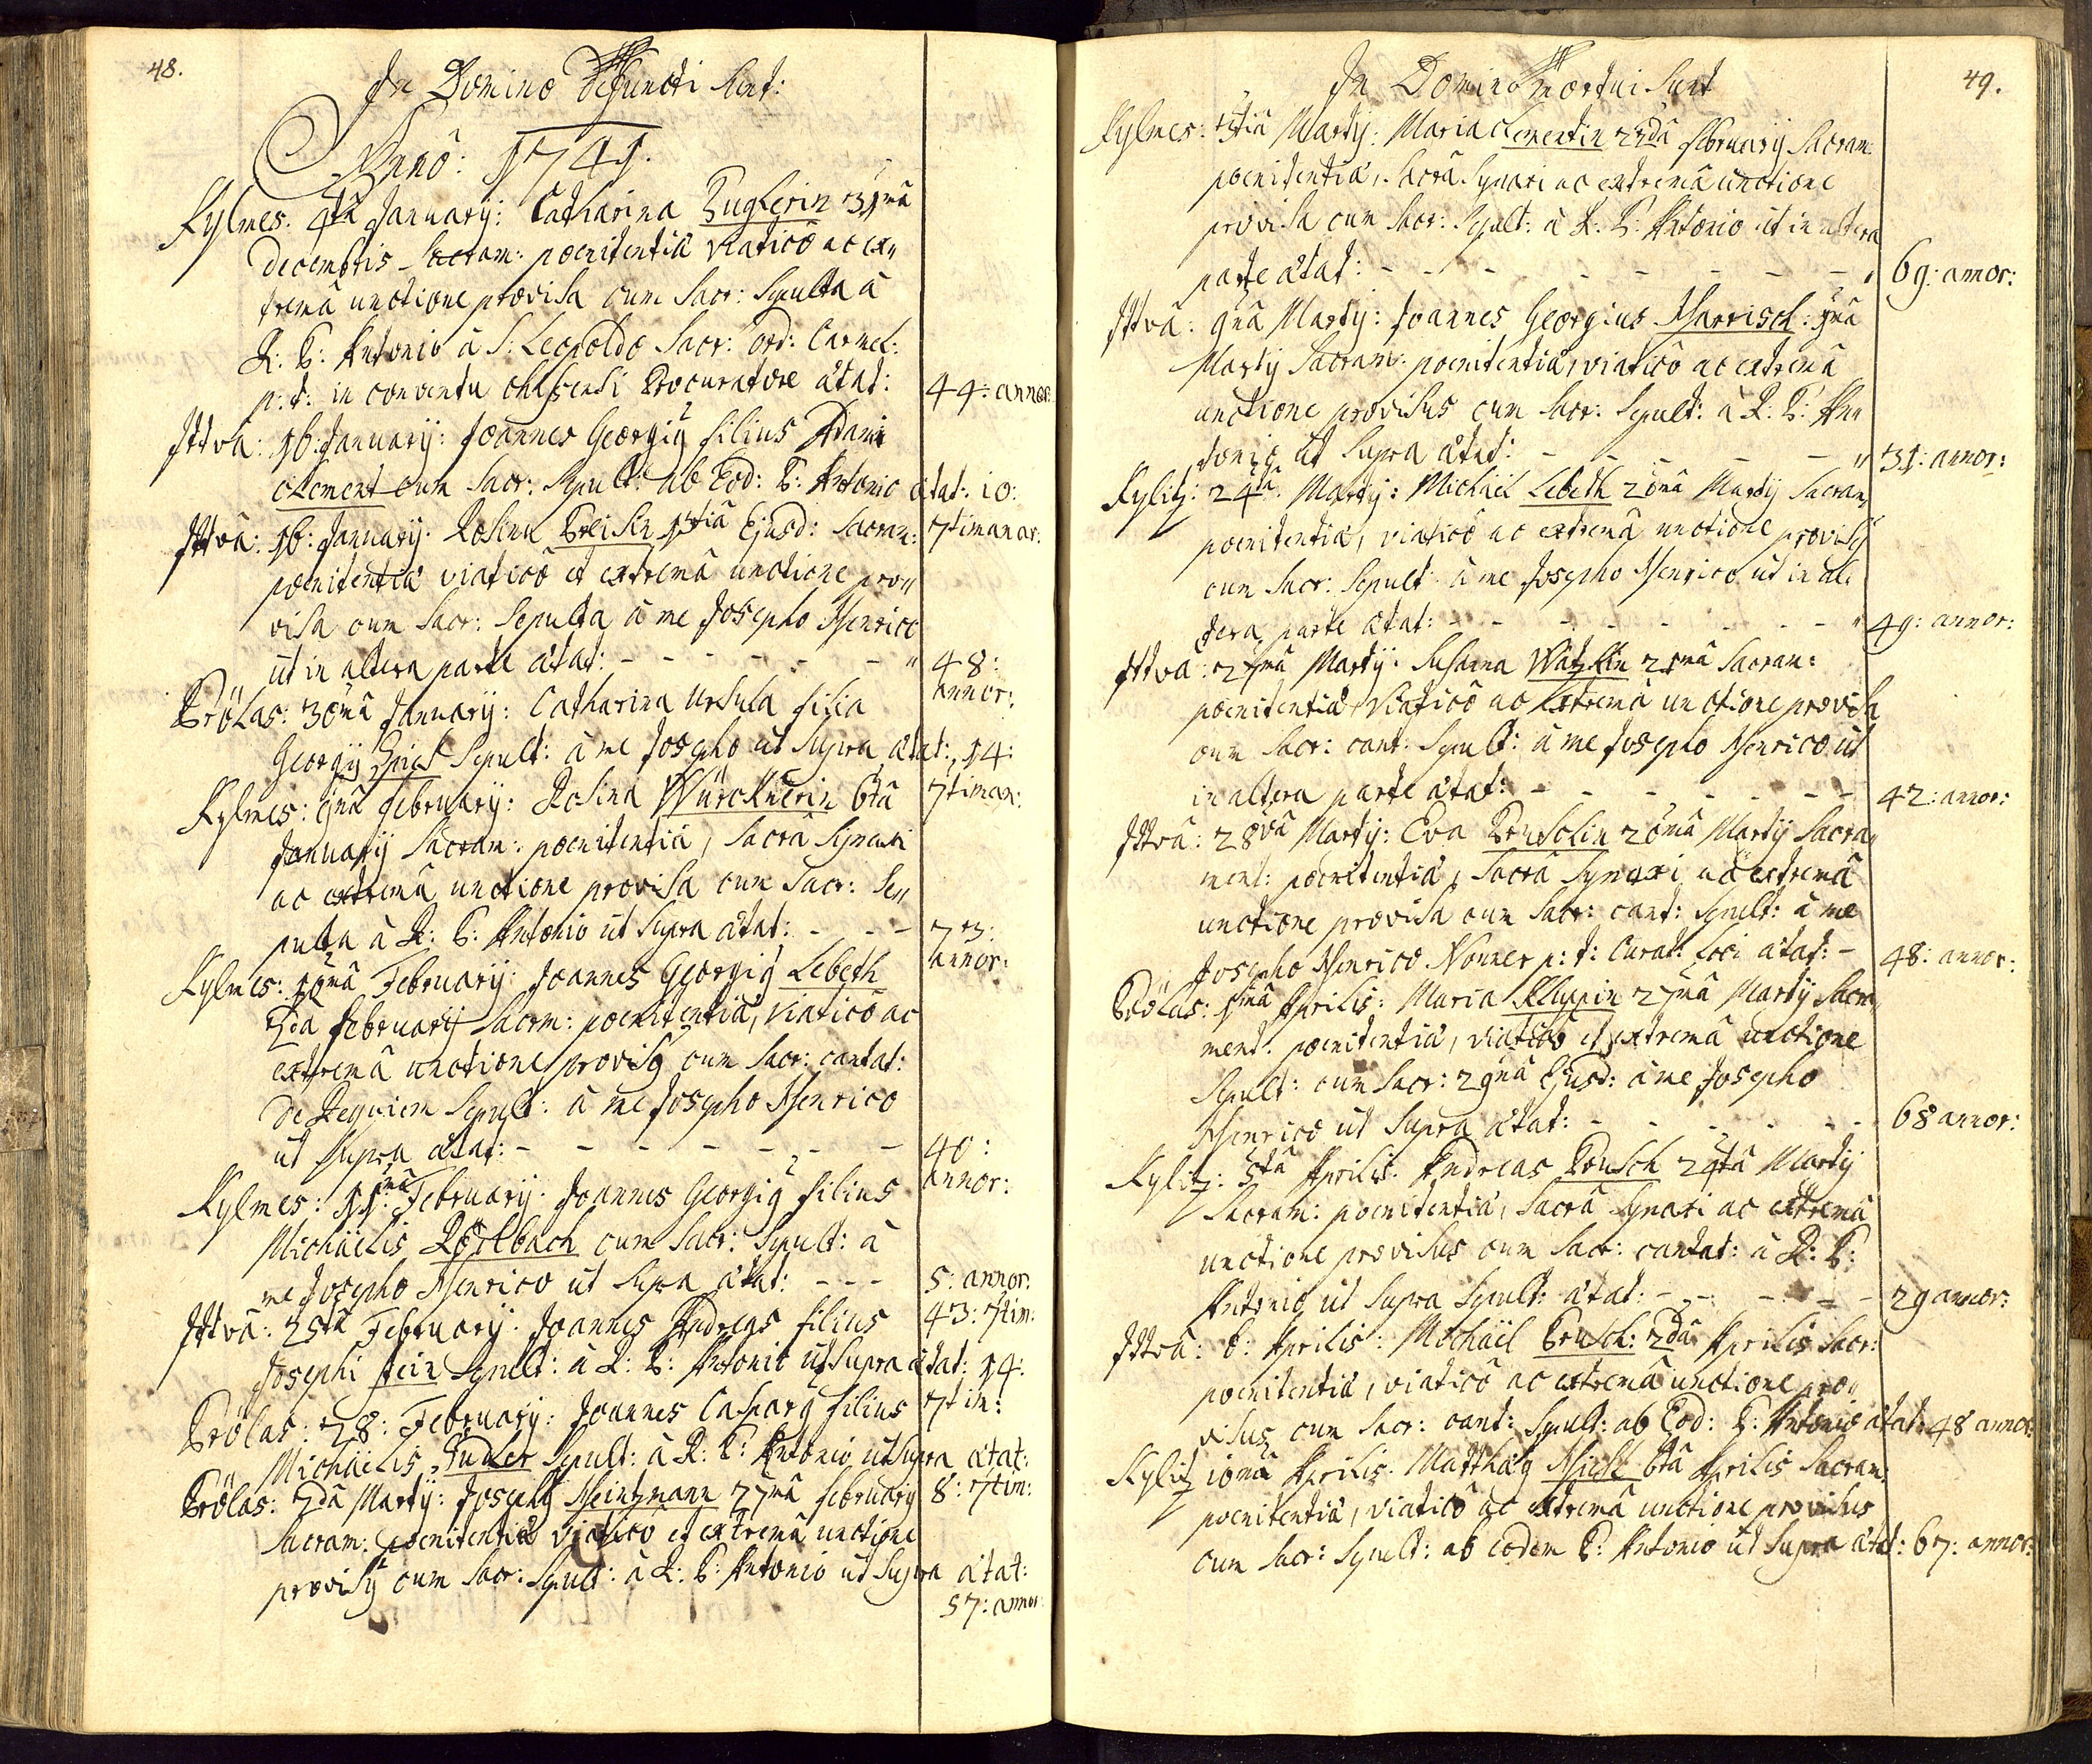 48.
In Domino defuncti sunt:
Anno: 1741.
Kylmes: 4ta January: Catharina Zuglerin 31ma
decembris Sacram: poenitentiâ viaticô ac ex„
tremâ unctione provisa cum Sacr: Sepulta â
R: P: Antonio â S: Leopoldo Sacr: Ord: Carmel:
p: t: in conventu Procuratore ætat: 44: annor:
Ittvâ: 16: January: Joannes Georgig filius Adami
Clement cum Sacr: Sepult: ab Eod: P: Antonio ætat: 10:
7timanar:
Ittvâ: 16: January: Rosina Preisin 13tiâ Ejusd: Sacram:
poenitentiâ viaticô et extremâ unctione pro„
visa cum Sacr: Sepulta â me Josepho Henrico
ut in altera parte ætat: - - - - - - „ 48:
annor:
Prölas: 30mâ January: Catharina Ursula filia
Georgÿ Spies Sepult: â me Josepho ut Supra ætat: 14:
7timan:
Kylmes: 9nâ february: Rosina Würcknerin 6tâ
January Sacram: poenitentiâ, Sacrâ Synaxi
ac extremâ unctione provisa cum Sacr: Se„
pulta â R: P: Antonio ut Supra ætat: - - - 73:
annor:
Kylmes: 10mâ February: Joannes Georgig Lebeth
february Sacrm: poenitentiâ, viaticô ac
extremâ unctione provisg cum Sacr: cantat:
de Requiem Sepult: â me Josepho Henrico
ut Supra ætat: - - - - - - - 40:
annor:
Kylmes: 11mâ: February: Joannes Georgig filius
Michaëlis Rörlbach cum Sacr: Sepult: â
me Josepho Henrico ut Supra ætat: - - - 5: annor:
43: 7tim:
Ittvâ: 25tâ February: Joannes Andreas filius
Josephi Fein Sepult: â R: P: Antonio ut Supra ætat: 14:
7tim:
Prölas: 28: February: Joannes Casparg filius
Michaëlis Fudler Sepult: â R: P: Antonio ut Supra ætat:
8: 7tim:
Prölas: 2dâ Martÿ: Josephg Heintzmann 27mâ february
Sacram: poenitentiâ viaticô et extremâ unctione
provisg cum Sacr: Sepult: â R: P: Antonio ut Supra ætat:
57: annor:
49.
In Domino mortui sunt
Kylmes: 3tiâ Martÿ: Maria Clementin 22dâ february Sacram:
poenitentiâ, Sacrâ Synaxi ac extremâ unctione
provisa cum Sacr: Sepult: â R: P: Antonio ut in altera
parte ætat: - - - - - - - - „ 69: annor:
Ittvâ: 9nâ Martÿ: Joannes Georgius Harrisch: 7mâ
Martÿ Sacram: poenitentiâ, viaticô ac extremâ
unctione provisus cum Sacr: Sepult: â R: P: An„
tonio ut Supra ætat: - - - - - „ 31: annor:
Kylitz: 24tâ: Martÿ: Michaël Lebeth 20mâ Martÿ Sacram:
poenitentiâ, viaticô ac extremâ unctione provisg
cum Sacr: Sepult: â me Josepho Henrico ut in al„
tera parte ætat: - - - - - - - - „ 49: annor:
Ittvâ: 27mâ Martÿ: Susanna Watzkin 21mâ Sacram:
poenitentiâ, viaticô ac extremâ unctione provisa
cum Sacr: cant: Sepult: â me Josepho Henrico ut
in altera parte ætat: - - - - - - - 42: annor:
Ittvâ: 28vâ Martÿ: Eva Pruschin 20mâ Martÿ Sacra„
ment: poenitentiâ, Sacrâ Synaxi ac extremâ
unctione provisa cum Sacr: cant: Sepult: â me
Josepho Henrico Nonner p: t: Curat: loci ætat: - 48: annor:
Prölas: 1mâ Aprilis: Maria Kluppin 27mâ Martÿ Sacra„
ment: poenitentiâ, viaticô et extremâ unctione
Sepult: cum Sacr: 29nâ Ejusd: â me Josepho
Henrico ut Supra ætat: - - - - - - 68 annor:
Kylitz: 5tâ Aprilis: Andreas Prusch 24tâ Martÿ
Sacram: poenitentiâ, Sacrâ Synaxi ac extremâ
unctione provisus cum Sacr: cantat: â R: P:
Antonio ut Supra Sepult: ætat: - - - - - 29 annor:
Ittvâ: 6: Aprilis: Michaël Prusch: 2dâ Aprilis Sacr:
poenitentiâ, viaticô ac extremâ unctione pro„
visus cum Sacr: cant: Sepult: ab Eod: P: Antonio ætat: 48 annor:
Kylitz 10mâ Aprilis: Matthæg 6tâ Aprilis Sacram:
poenitentiâ, viaticô ac extremâ unctione provisus
cum Sacr: Sepult: ab eodem P: Antonio ut Supra ætat: 67: annor: